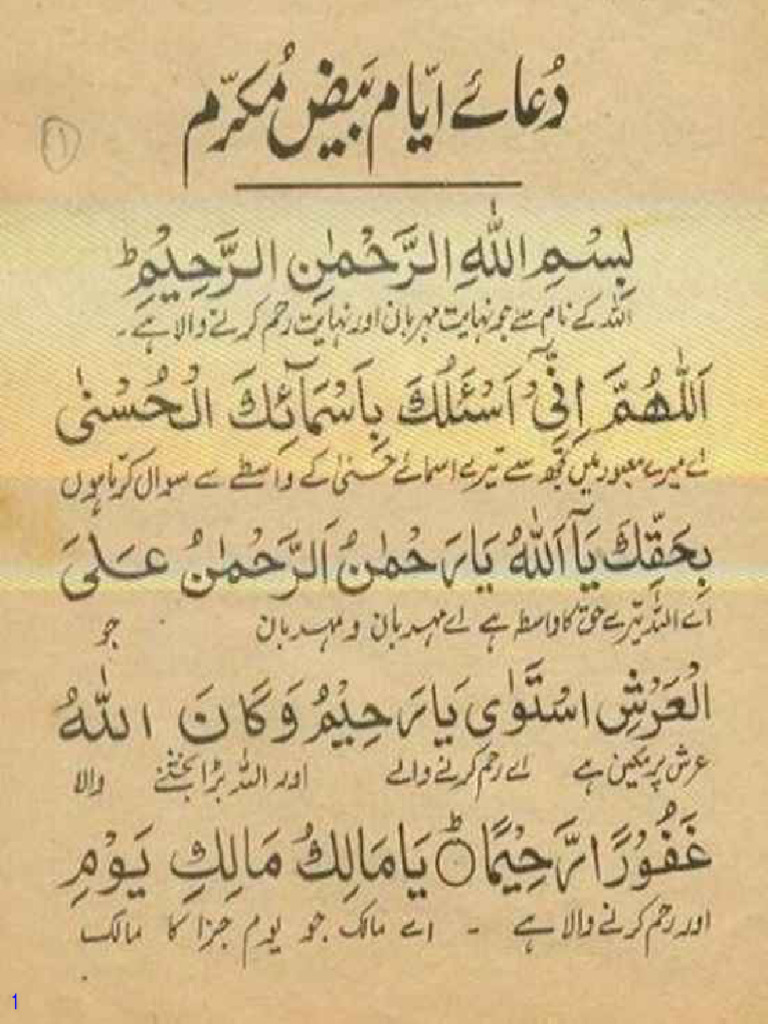 دُعائے ایّام بَیض مُکرّم
۱
بِسْمِ اللّٰهِ الرَّحْمٰنِ الرَّحِيْمِ ؕ
اللہ کے نام سے جو نہایت مہربان اور نہایت رحم کرنے والا ہے ۔
اَللّٰهُمَّ اِنِّیْٓ اَسْئَلُكَ بِاَسْمَآئِكَ الْحُسْنٰی
اے میرے معبود میں تجھ سے تیرے اسمائے حسنیٰ کے واسطے سے سوال کرتا ہوں
بِحَقِّكَ يَآ اَللّٰهُ يَا رَحْمٰنُ اَلرَّحْمٰنُ عَلَی
اے اللہ تیرے حق کا واسطہ ہے اے مہربان و مہربان جو
الْعَرْشِ اسْتَوٰی يَا رَحِيْمُ وَكَانَ اللّٰهُ
عرش پر مکین ہے اے رحم کرنے والے اور اللہ بڑا بخشنے والا
غَفُوْرًا رَّحِيْمًا ؕ يَا مَالِكُ مَالِكِ يَوْمِ
اور رحم کرنے والا ہے ۔ اے مالک جو یوم جزا کا مالک
1